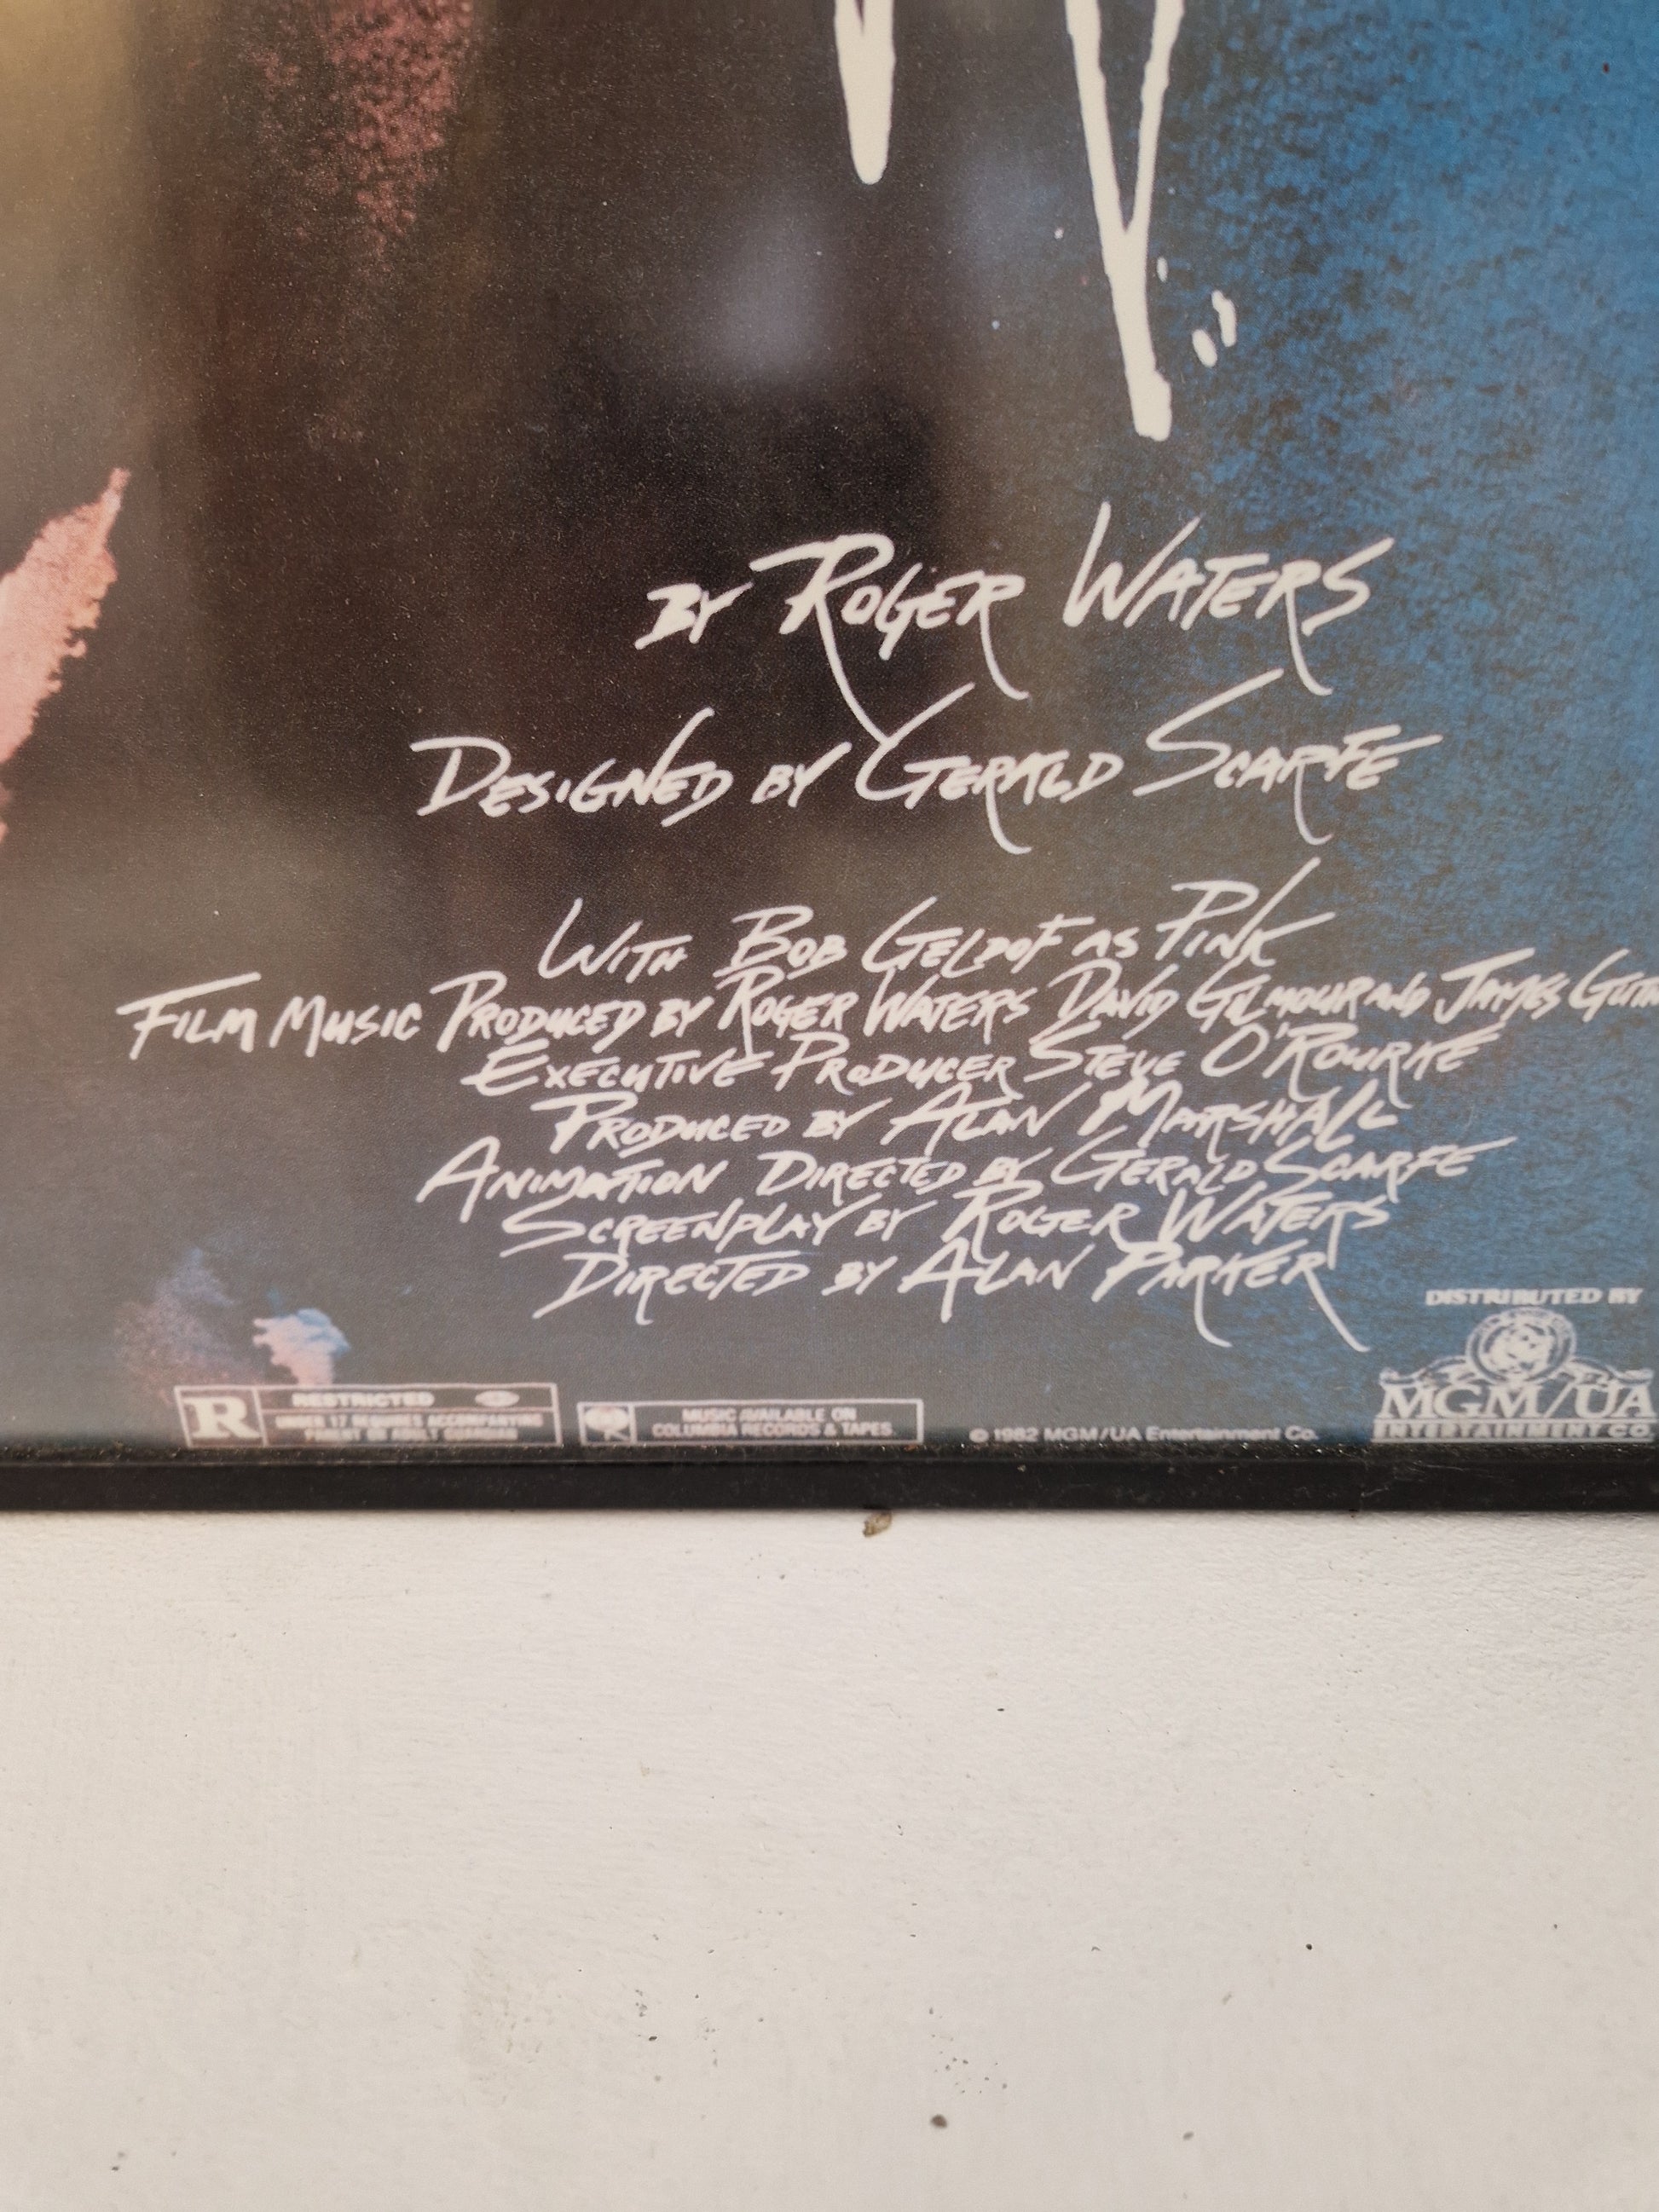 BY ROGER WATERS
DESIGNED BY GERALD SCARFE
WITH BOB GELDOF AS PINK
FILM MUSIC PRODUCED BY ROGER WATERS DAVID GILMOUR AND JAMES
EXECUTIVE PRODUCER STEVE O'ROURKE
PRODUCED BY ALAN MARSHALL
ANIMATION DIRECTED BY GERALD SCARFE
SCREENPLAY BY ROGER WATERS
DIRECTED BY ALAN PARKER
DISTRIBUTED BY
MGM/UA
ENTERTAINMENT CO.
R RESTRICTED
UNDER 17 REQUIRES ACCOMPANYING
PARENT OR ADULT GUARDIAN
MUSIC AVAILABLE ON
COLUMBIA RECORDS & TAPES.
© 1982 MGM/UA Entertainment Co.